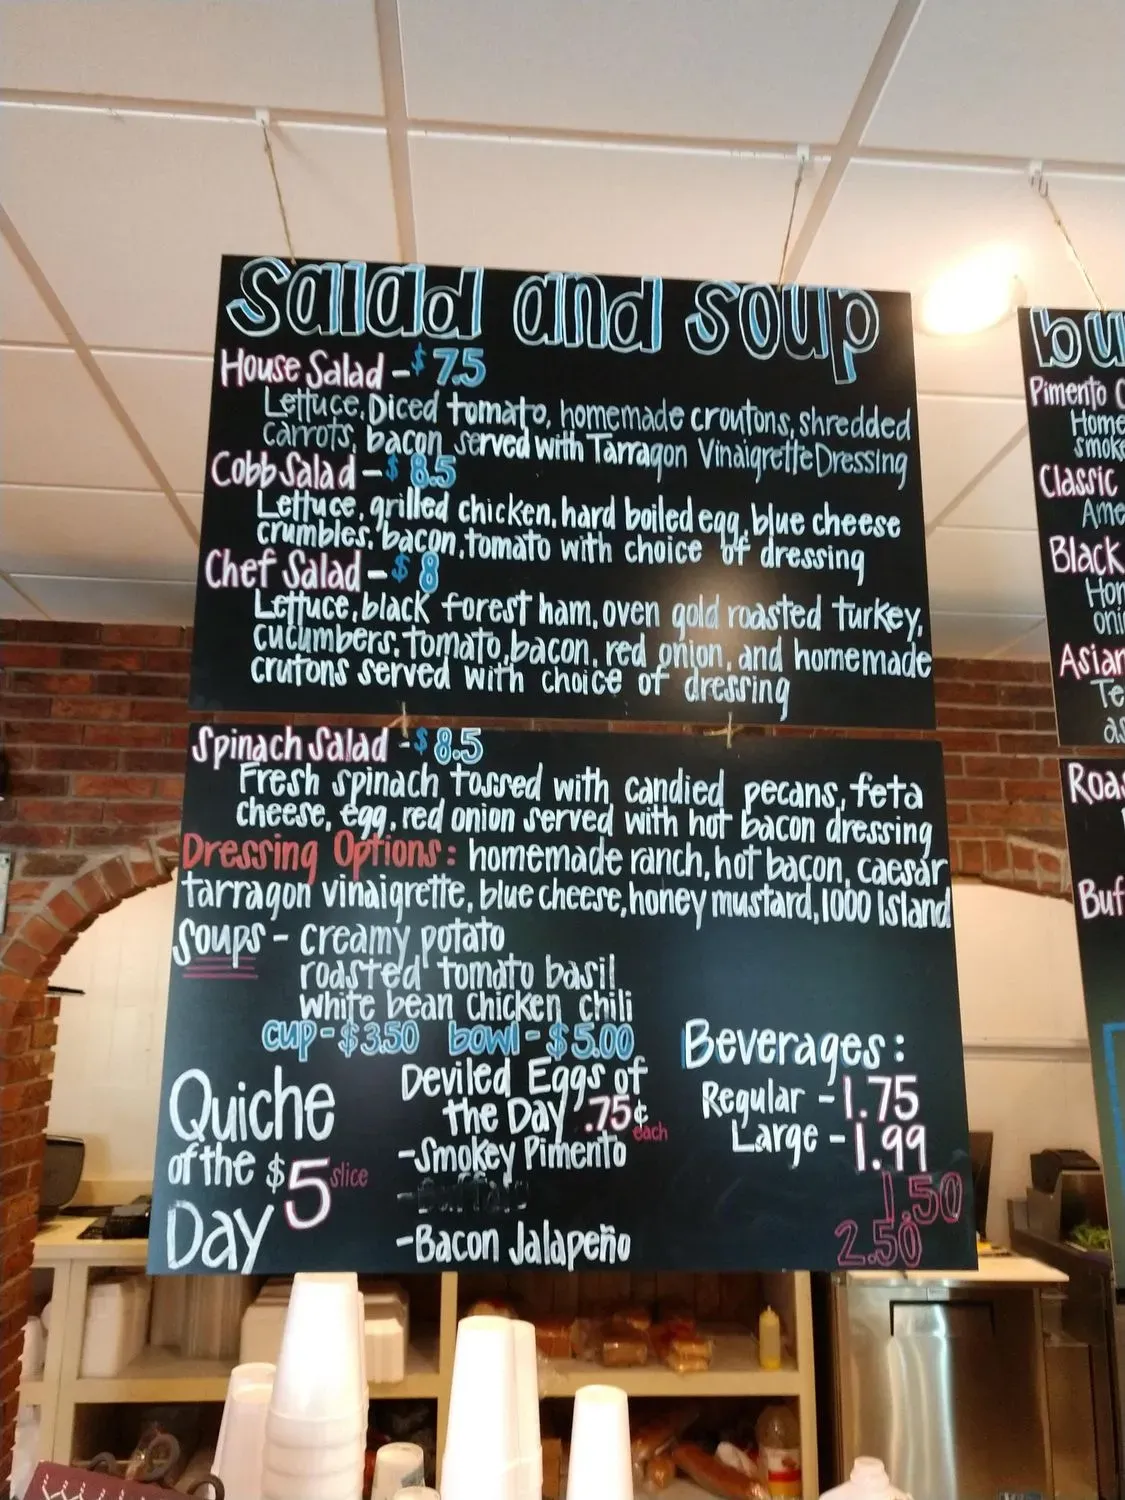 Salad and Soup
House Salad - $7.5
Lettuce, Diced tomato, homemade croutons, shredded
carrots, bacon served with Tarragon Vinaigrette Dressing
Cobb Salad - $8.5
Lettuce, grilled chicken, hard boiled egg, blue cheese
crumbles, bacon, tomato with choice of dressing
Chef Salad - $8
Lettuce, black forest ham, oven gold roasted turkey,
cucumbers, tomato, bacon, red onion, and homemade
crutons served with choice of dressing
Spinach Salad - $8.5
Fresh spinach tossed with candied pecans, feta
cheese, egg, red onion served with hot bacon dressing
Dressing Options: homemade ranch, hot bacon, caesar
tarragon vinaigrette, blue cheese, honey mustard, 1000 Island
Soups - creamy potato
roasted tomato basil
white bean chicken chili
cup - $3.50 bowl - $5.00
Quiche
of the $5 slice
Day
Deviled Eggs of
the Day .75¢
each
- Smokey Pimento
- Bacon Jalapeño
Beverages:
Regular - 1.75
Large - 1.99
1.50
2.50
bu
Pimento C
Home
smoke
Classic
Ame
Black
Hon
onio
Asian
Te
as
Roas
Buf